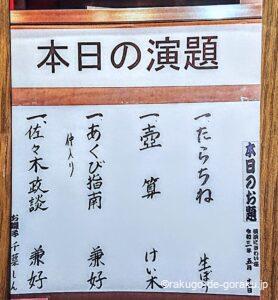 本日の演題
本日のお題
一、たらちね 生ぼ
一、壺算 けい木
一、あくび指南 兼好
仲入り
一、佐々木政談 兼好
お囃子 千葉しん
©rakugo-de-goraku.jp